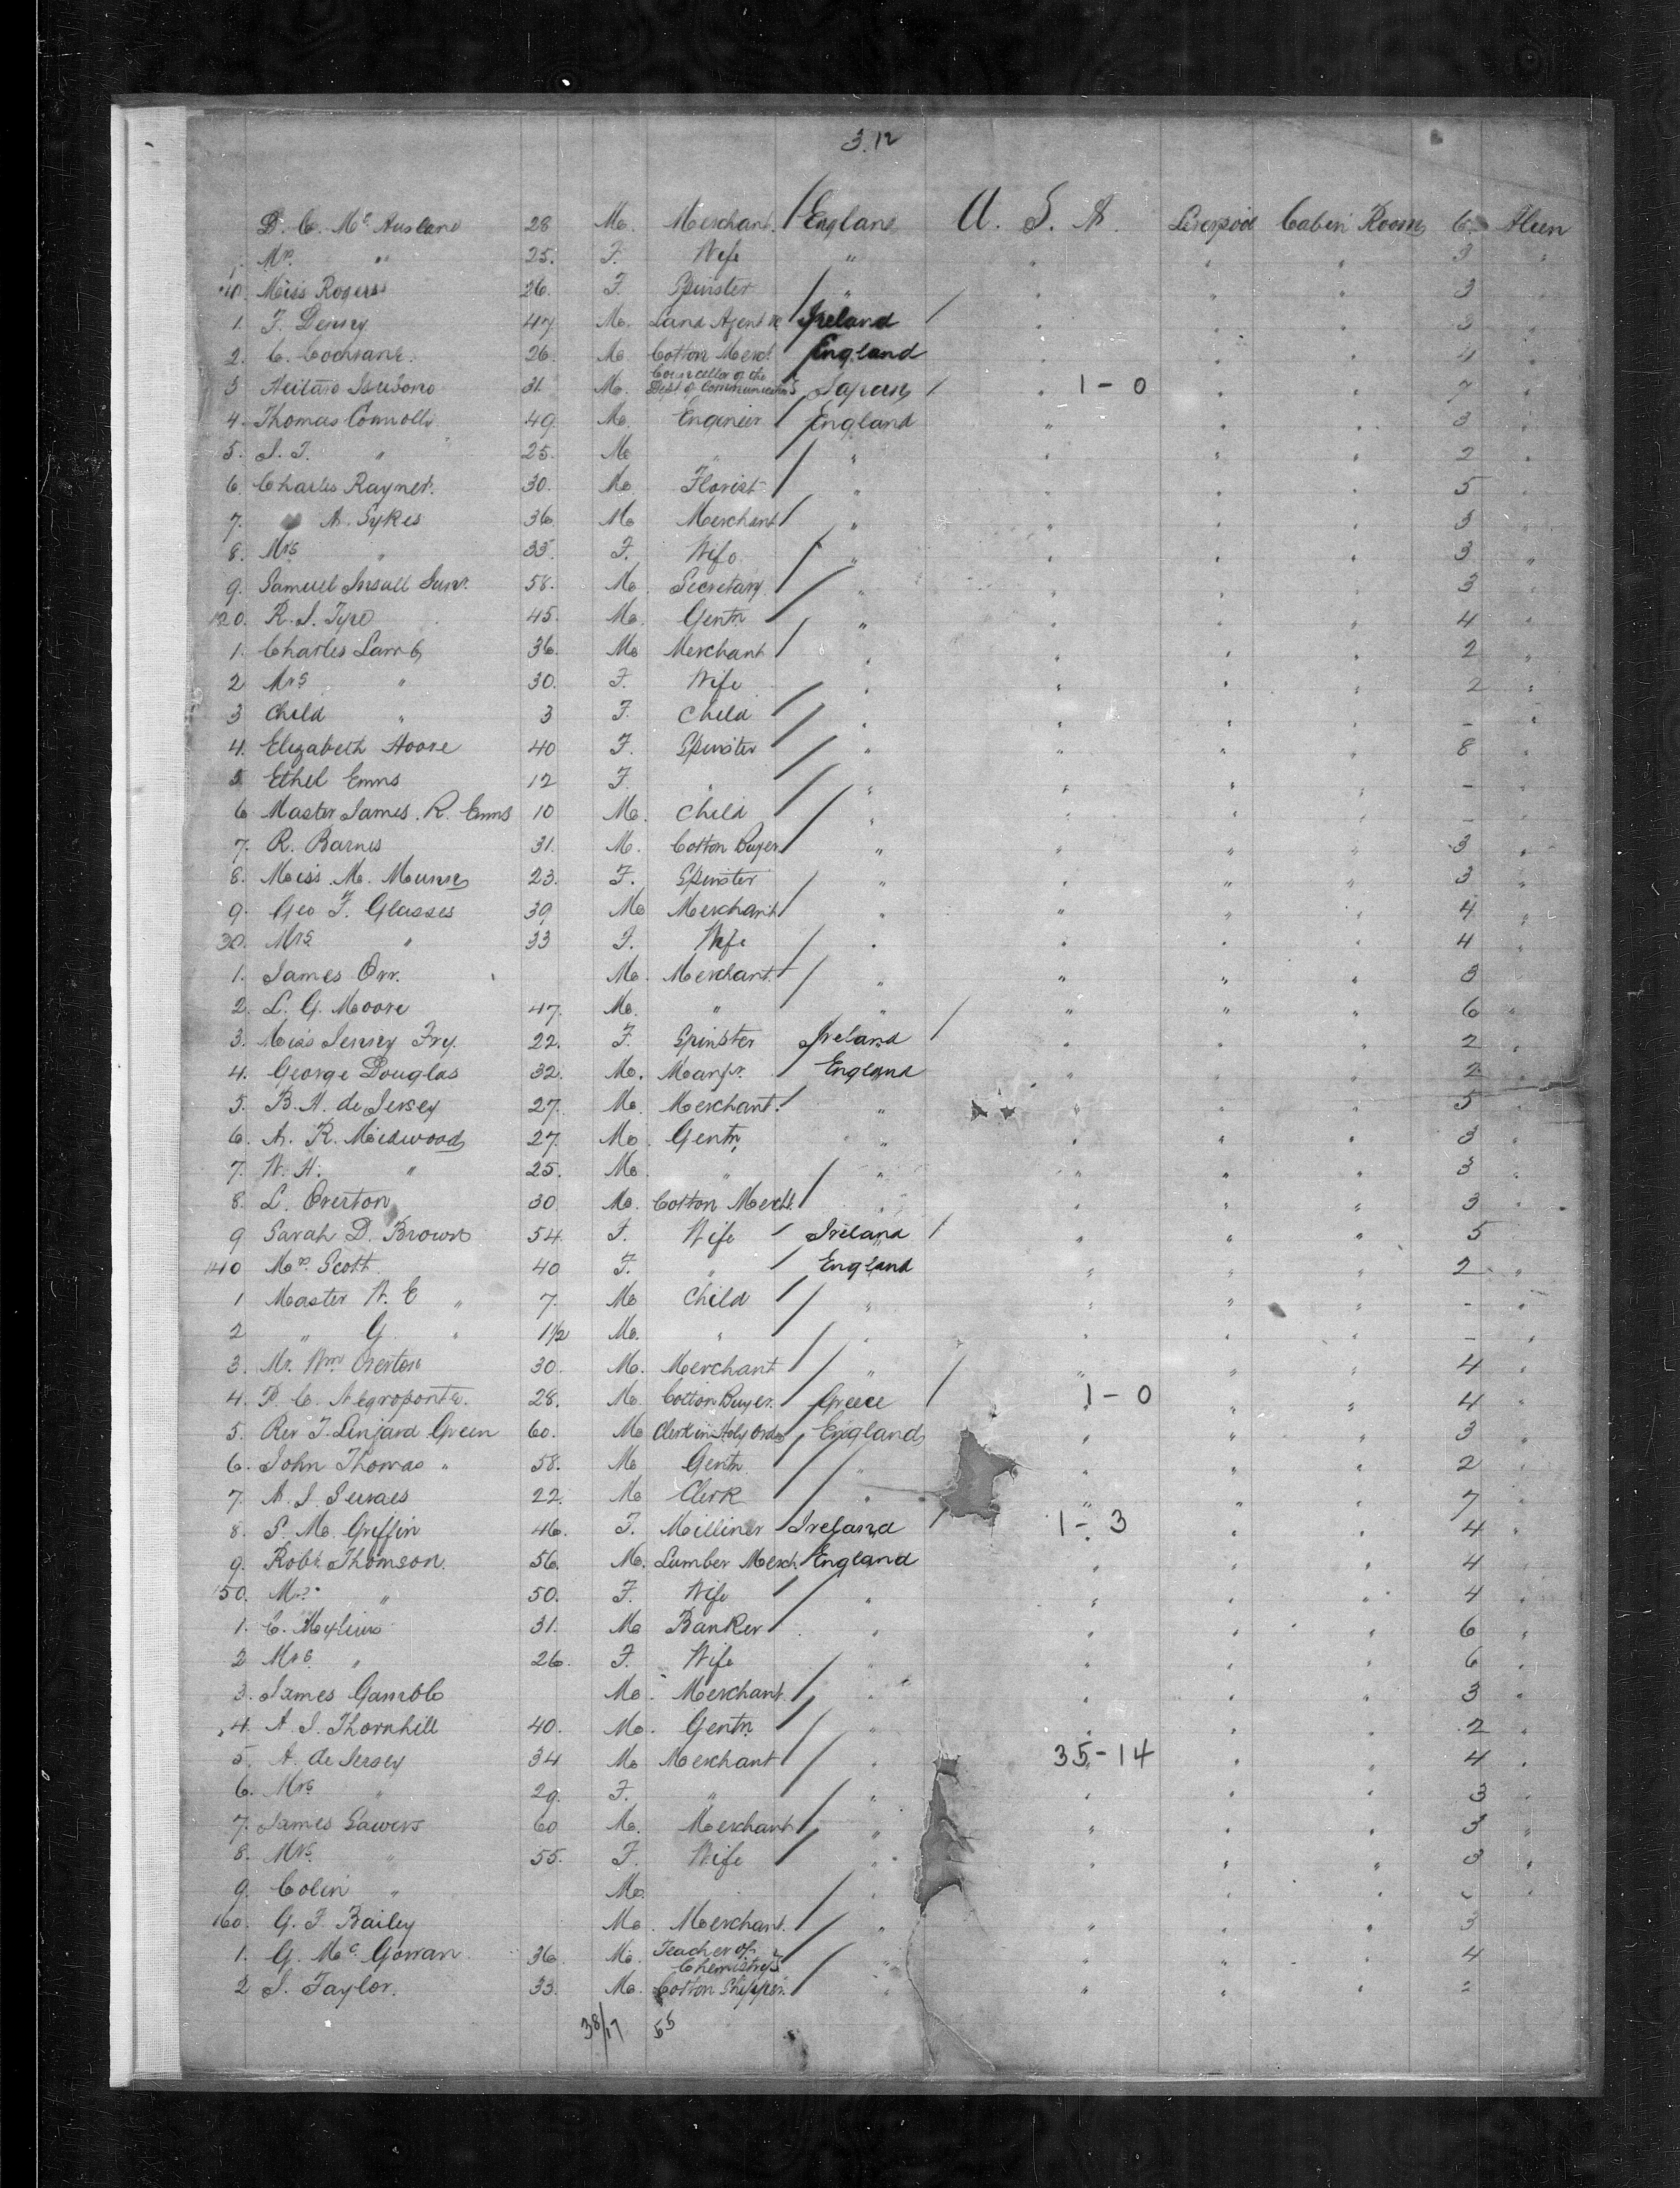 3.12
D. C. Mc Ausland 28 M. Merchant / England U. S. A. Liverpool Cabin Room 6 Alien
Mrs. " 25. F. Wife " " " " 3 "
110. Miss Rogers 26. F. Spinster / " / " " " 3 "
1. F. Denny 47 M. Land Agent / Ireland / " " " 3 "
2. C. Cochrane. 26. M. Cotton Mercht. / England " " " 4 "
3 31. M. Councellor of the Dept of Communications / Japan / " 1-0 " " 7 "
4. Thomas Connolly 49. M. Engineer / England " " " 3 "
5. J. T. " 25. M. " / " " " " 2 "
6. Charles Rayner. 30. M. Florist / " " " " 5 "
7. A. Sykes 36. M. Merchant / " " " " 3 "
8. Mrs " 35. F. Wife / " " " " 3 "
9. Samuel Insull Senr. 58. M. Secretary / " " " " 3 "
120. R. S. Type 45. M. Gentn / " " " " 4 "
1. Charles Lamb 36. M. Merchant / " " " " 2 "
2 Mrs " 30. F. Wife / " " " " 2 "
3 Child " 3 F. Child / " " " " - "
4. Elizabeth Hoose 40 F. Spinster / " " " " 8 "
5. Ethel Enns 12 F. " / " " " " - "
6 Master James R. Enns 10 M. Child / " " " " - "
7. R. Barnes 31. M. Cotton Buyer / " " " " 3 "
8. Miss M. Munn 23. F. Spinster / " " " " 3 "
9. Geo F. Glasses 39 M. Merchant / " " " " 4 "
30. Mrs " 33 F. Wife / " " " " 4 "
1. James Orr. M. Merchant / " " " " 3 "
2. L. G. Moore 47. M. " / " / " " " 6 "
3. Miss Jenny Fry. 22. F. Spinster Ireland / " " " 2 "
4. George Douglas 32. M. Manfr. England " " " 2 "
5. B. H. de Jersey 27. M. Merchant / " " " " 5 "
6. A. R. Midwood 27. M. Gentn " " " " 3 "
7. W. H. " 25. M. " / " " " " 3 "
8. L. Overton 30 M. Cotton Mercht. / " " " " 3 "
9 Sarah D. Brown 54. F. Wife / Ireland / " " " 5
140 Mrs. Scott 40 F. " / England " " " 2 "
1 Master W. E " 7. M. Child / " " " " - "
2 " G. " 1 1/2 M. " / " " " " - "
3. Mr. Wm Overton 30. M. Merchant / " / " " " 4 "
4. P. C. Negroponte. 28. M. Cotton Buyer / Greece / 1-0 " " 4 "
5. Rev J. Linjard Green 60. M. Clerk in Holy Orders / England " " " 3 "
6. John Thomas " 58. M. Gentn / " " " " 2 "
7. A. J. 22. M. Clerk / " " " " 7 "
8. S. M. Griffin 46. F. Milliner Ireland / 1-3 " " 4 "
9. Robt. Thomson. 56. M. Lumber Merch / England " " " 4 "
150. Mrs. " 50. F. Wife / " " " " 4 "
1. C. Meylius 31. M. Banker / " " " " 6 "
2 Mrs. " 26. F. Wife / " " " " 6 "
3. James Gamble M. Merchant / " " " " 3 "
4. A. J. Thornhill 40. M. Gentn / " " " " 2 "
5. A. de Jersey 34 M. Merchant / " 35-14 " " 4 "
6. Mrs " 29. F. " / " " " " 3 "
7. James Sawers 60 M. Merchant / " " " " 3 "
8. Mrs. " 55. F. Wife / " " " " 3 "
9. Colin " M. / " " " "
160. G. F. Bailey M. Merchant / " " " " 3 "
1. G. Mc Gowan 36. M. Teacher of Chemistry / " " " " 4 "
2 J. Taylor. 33. M. Cotton Shipper / " " " "
38/17 55